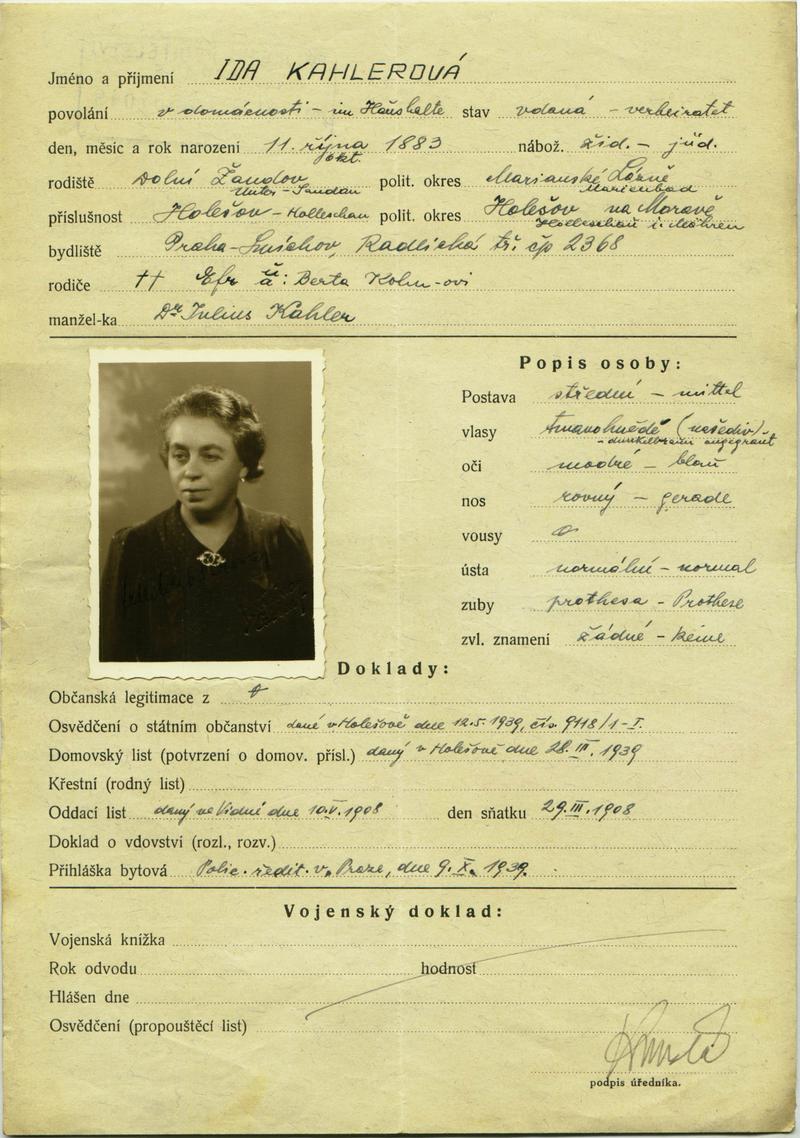 Jméno a příjmení IDA KAHLEROVÁ
povolání v domácnosti – im Haushalte stav vdaná – verheiratet
den, měsíc a rok narození 11. října 1883 nábož. žid. – jüd.
Okt.
rodiště Dolní Žandov polit. okres Marianské Lázně
Unter-Sandau Marienbad
příslušnost Holešov – Holleschau polit. okres Holešov na Moravě
Holleschau i. Mähren
bydliště Praha-Smíchov, Radlická tř. čp 2368
rodiče †† Berta Kohn-ovi
manžel-ka Dr Julius Kahler
Popis osoby:
Postava střední – mittel
vlasy tmavohnědé
oči modré – blau
nos rovný – gerade
vousy
ústa normální – normal
zuby prothesa – Prothese
zvl. znamení žádné – keine
Doklady:
Občanská legitimace z
Osvědčení o státním občanství dané v Holešově dne 12.5.1939, čís. 9118/1-I.
Domovský list (potvrzení o domov. přísl.) daný v Holešově dne 28.III.1939
Křestní (rodný list)
Oddací list daný ve Vídni dne 10.V.1908 den sňatku 29.III.1908
Doklad o vdovství (rozl., rozv.)
Přihláška bytová Polic. ředit. v Praze, dne 9.X.1939.
Vojenský doklad:
Vojenská knížka
Rok odvodu hodnost
Hlášen dne
Osvědčení (propouštěcí list)
podpis úředníka.